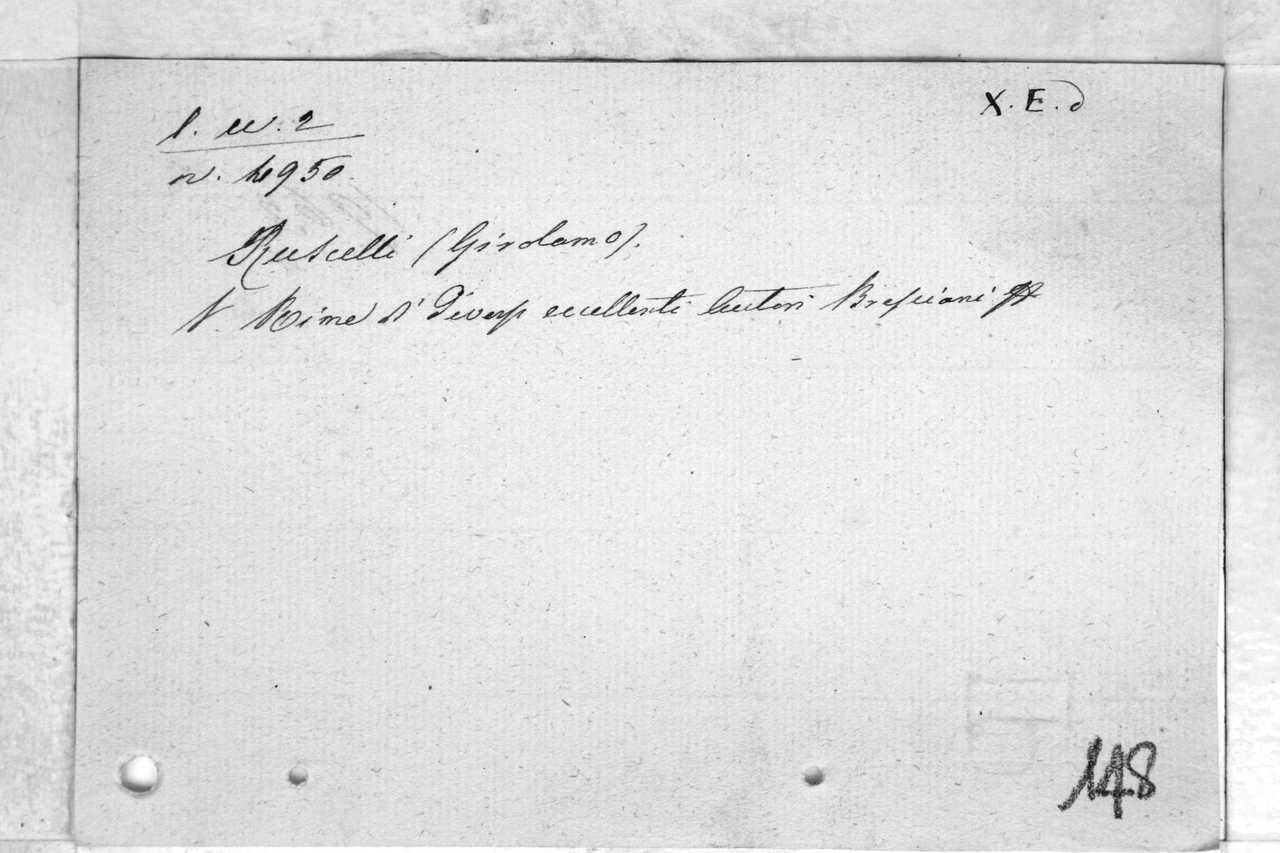 X. E. d
l. w. 2
n. 4950.
Ruscelli (Girolamo).
V. Rime di Diversi eccellenti Autori Bresciani
148